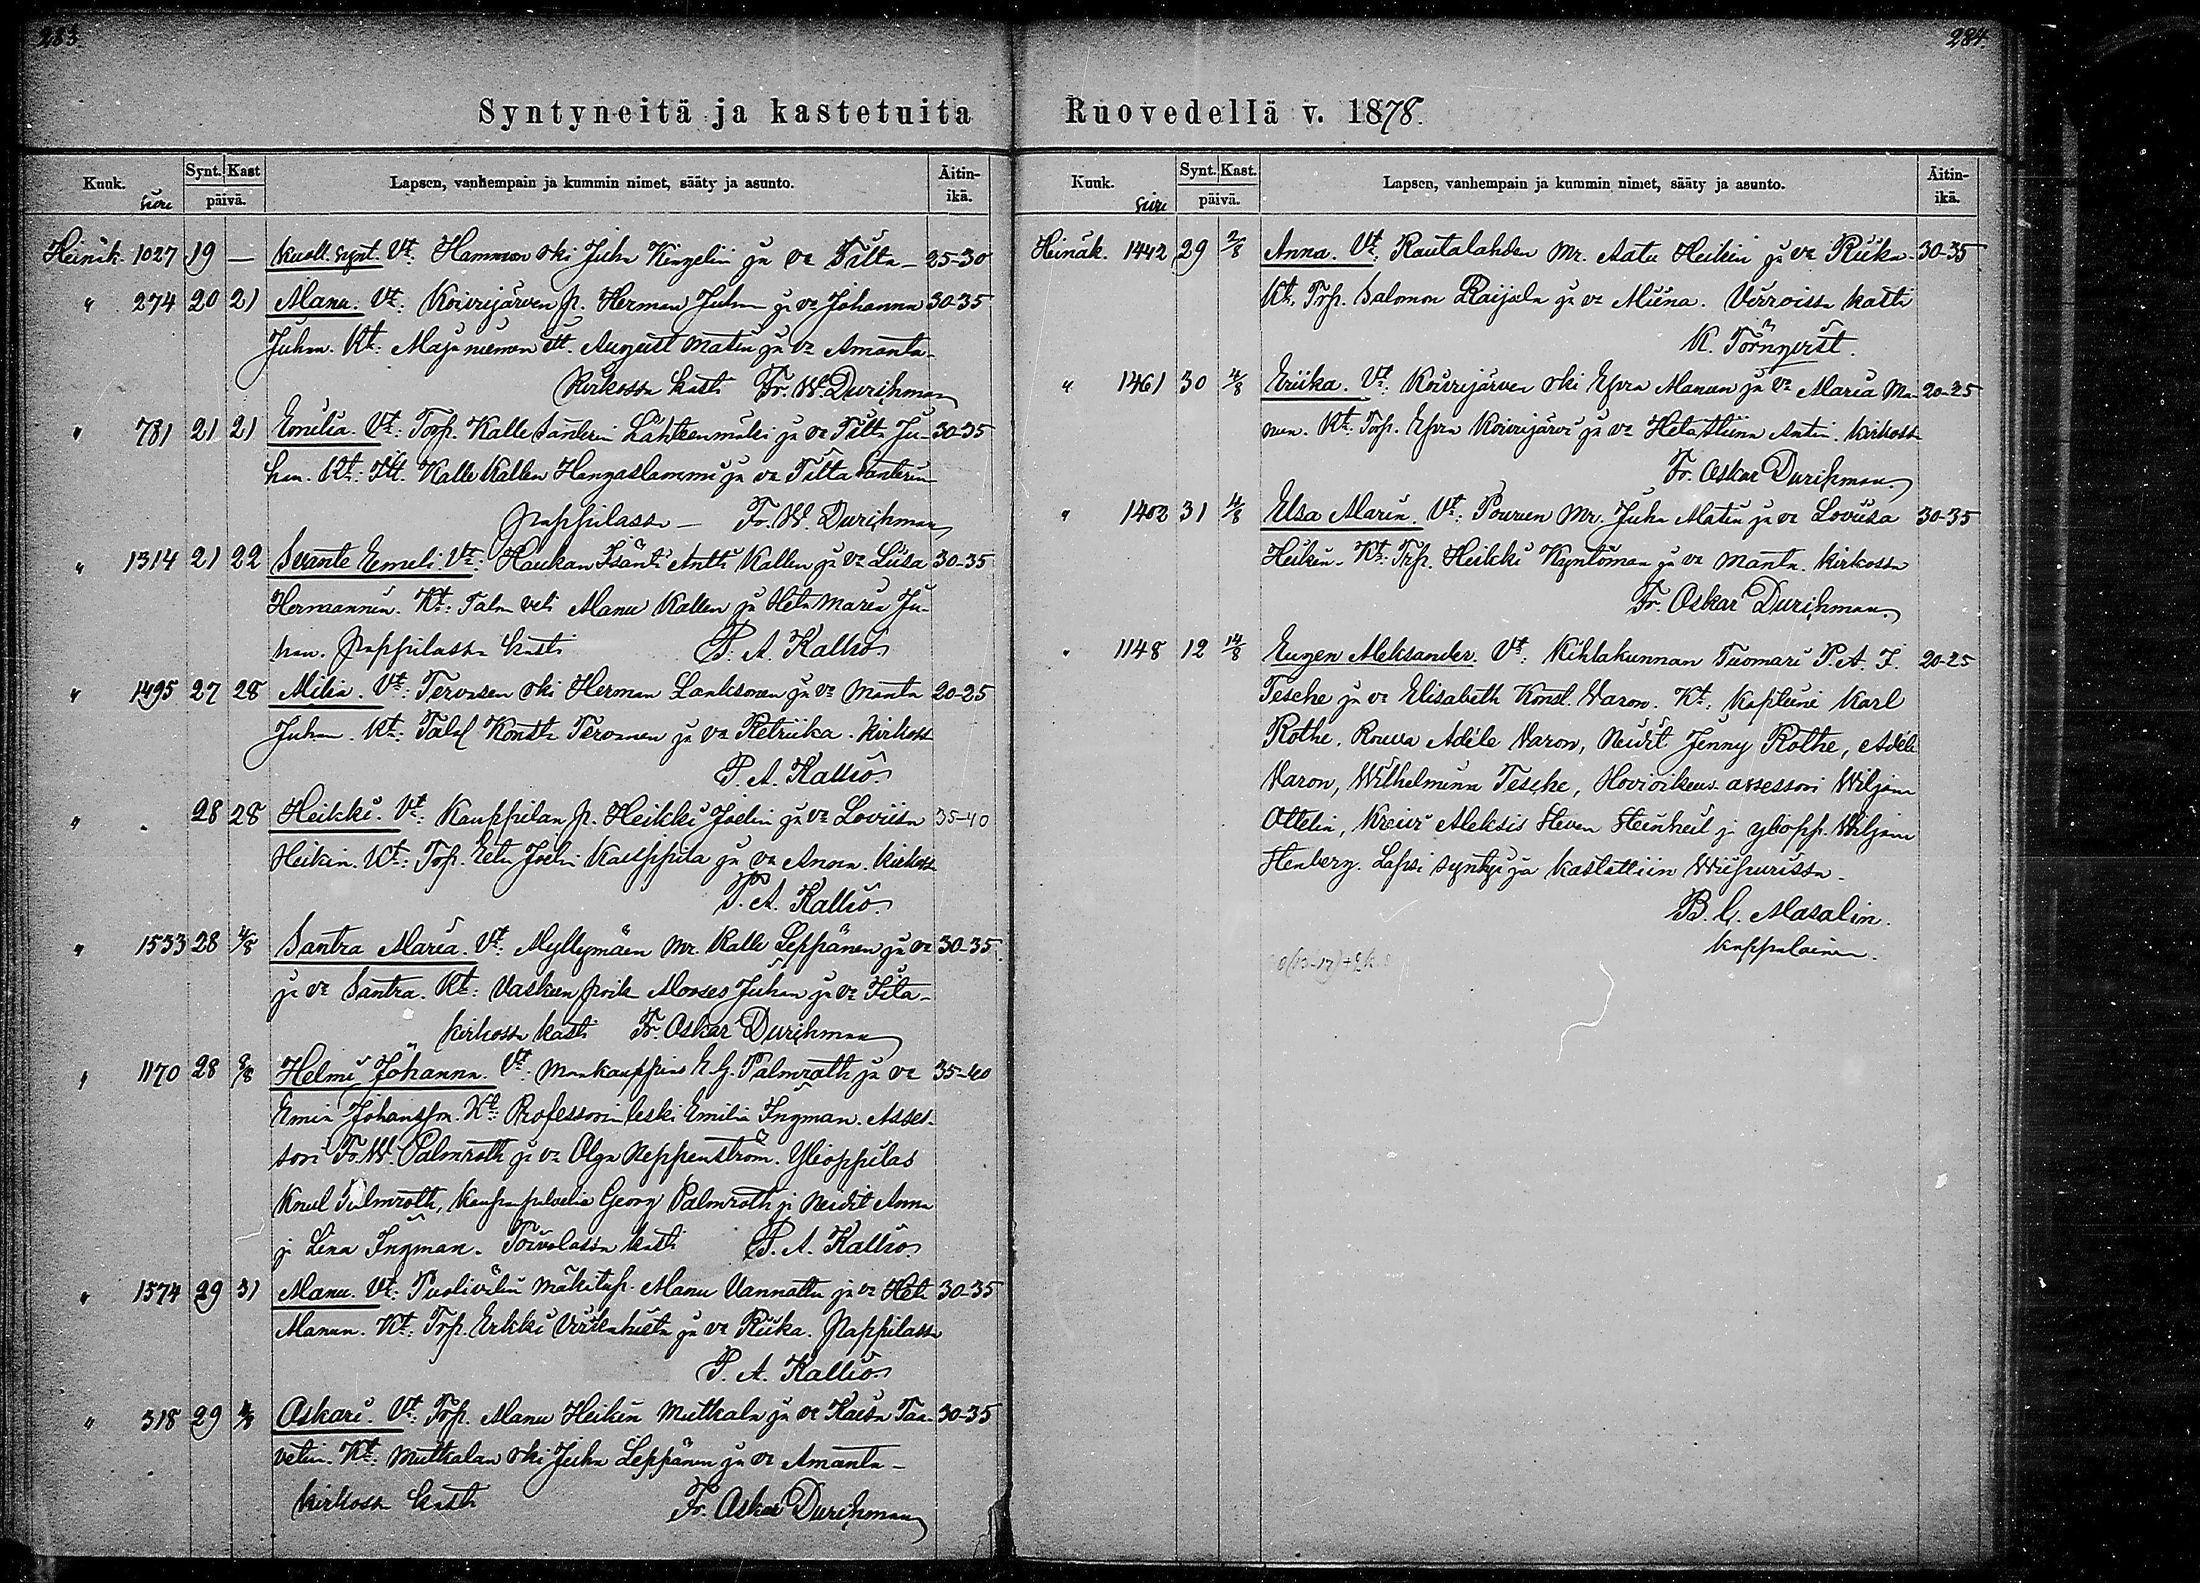 283.
Syntyneitä ja kastetuita
Kuuk. Sivu Synt. Kast päivä. Lapsen, vanhempain ja kummin nimet, sääty ja asunto. Äitin- ikä.
Heinäk. 1027 19 — Kuoll. synt. Vt. Juha ja vo Tilta 25-30
" 274 20 21 Manu. Vt: Koivujärven p. Herman Juhan ja vo Johanna 30-35
Juhan. Kt: Majaniemen itt. August Matin ja vo Amanta.
Kirkossa kasti Fr. W. Durchman
" 781 21 21 Emilia. Vt: Torp. Kalle Santerin Lähteenmäki ja vo Tilta Ju- 30-35
han. Kt: Itt. Kalle Kallen Hangaslammi ja vo Tilta Santerin
Pappilassa — Fr. W. Durchman
" 1314 21 22 Svante Eemeli. Vt: Haukan Isäntä Antti Kallen ja vo Liisa 30-35
Hermannin. Kt: Tal. veli Manu Kallen ja Hela Maria Ju-
han. Pappilassa kasti P. A. Kallio
" 1495 27 28 Milia. Vt: Tervasen oki Herman Lanksonen ja vo Manta 20-25
Juhan. Kt: Konsta Tervanen ja vo Retriika. Kirkoss
P. A. Kallio.
" " 28 28 Heikki. Vt: Kauppilan p. Heikki Joelin ja vo Loviisa 35-40
Heikin. Kt: Trp. Eetu Joelin Kauppila ja vo Anna. Kirkossa
P. A. Kallio.
" 1533 28 4/8 Santra Maria. Vt: Myllymäen Mr. Kalle Leppänen ja vo 30-35
ja vo Santra. Kt: Vaskuen poik Mooses Juhan ja vo Iita
kirkossa kasti Fr. Oskar Durchman
" 1170 28 9/8 Helmi Johanna. Vt: Maakauppias E. G. Palmroth ja vo 35-40
Emia Johansson. Kt: Professorin leski Emilia Ingman. Asses-
sori Fr. W. Palmroth ja vo Olga Neppenström. Ylioppilas
Knut Palmroth, Kauppapalvelia Georg Palmroth ja Neidit Anna
ja Lina Ingman. Toivolassa kasti P. A. Kallio.
" 1574 29 31 Manu. Vt: Puolivälin mäkitup. Manu Vannattu ja vo Hela 30-35
Manun. Kt: Trp. Erkki ja vo Riika. Pappilassa
P. A. Kallio
" 318 29 4/8 Oskari. Vt: Trp. Manu Heikin Mutkala ja vo Kaisa Taa- 30-35
vetin. Kt: Mutkalan oki Juha Leppänen ja vo Amanta
kirkossa kasti Fr. Oskar Durchman
284.
Ruovedellä v. 1878.
Kuuk. Sivu Synt. Kast. päivä. Lapsen, vanhempain ja kummin nimet, sääty ja asunto. Äitin- ikä.
Heinäk. 1442 29 2/8 Anna. Vt: Rautalahden Mr. Aatu Heikin ja vo Riika 30-35
Kt. Trp. Salomon Raijala ja vo Miina. Virroissa kasti
K. Törnqvist.
" 1461 30 4/8 Eriika. Vt: Koivujärven oki Efra Manun ja vo Maria Ma- 20-25
nun. Kt: Torp. Efra Koivujärvi ja vo Heta Stiina Antin. kirkossa
Fr. Oskar Durchman.
" 1402 31 4/8 Elsa Maria. Vt: Pourun Mr. Juha Matin ja vo Loviisa 30-35
Heikin. Kt: Trp. Heikki Kyntömaa ja vo Manta. kirkossa
Fr. Oskar Durchman.
" 1148 12 14/8 Eugen Aleksander. Vt: Kihlakunnan Tuomari P. A. J. 20-25
Tesche ja vo Elisabeth Konst. Varon. Kt: Kapteini Karl
Rothe, Rouva Adéle Varon, Neidit Jenny Rothe, Adéle
Varon, Wilhelmina Tesche, Hovioikeus assessori Wiljam
Ottelin, Kreivi Aleksis Steven Steinheil ja yliopp. Wiljam
Stenberg. Lapsi syntyi ja kastettiin Wiipurissa.
B. G. Masalin.
kappalainen.